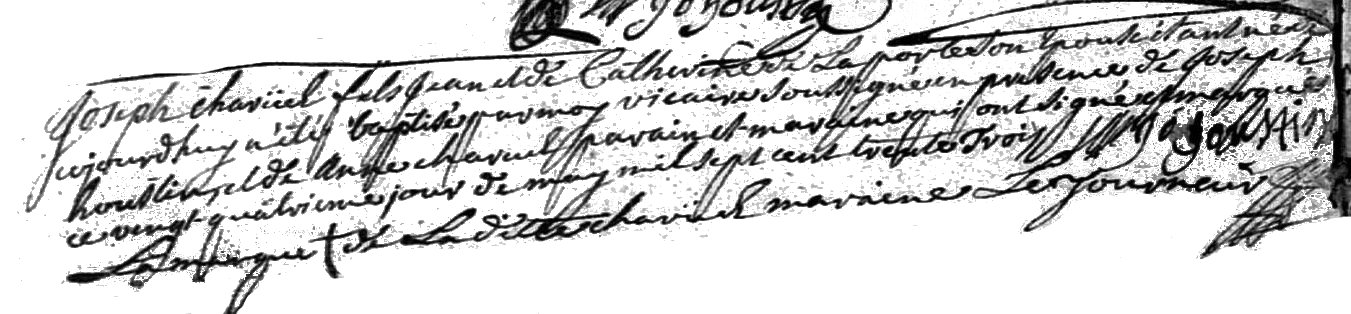 Joseph charüel fils Jean et de Catherine de La porte son Epouse étant né
aujourdhuy a été baptisé par moy vicaire soussigné en presence de Joseph
houstin et de Anne charuel parain et maraine qui ont signé et marqué
ce vingt quatrieme jour de may mil sept cent trente Trois
La marque † de La ditte charuel maraine Le Tourneur